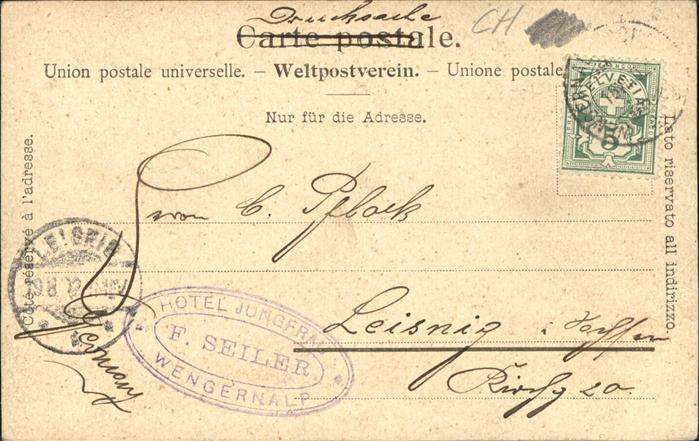 Drucksache
Carte postale.
CH
Union postale universelle. — Weltpostverein. — Unione postale
Nur für die Adresse.
HELVETIA
5
Côté réservé à l'adresse.
Lato riservato all indirizzo.
von C. Pflock
LEISNIG
Leisnig i. Sachsen
Kirchg 20.
Germany
HOTEL JUNGFRAU
F. SEILER
WENGERNALP